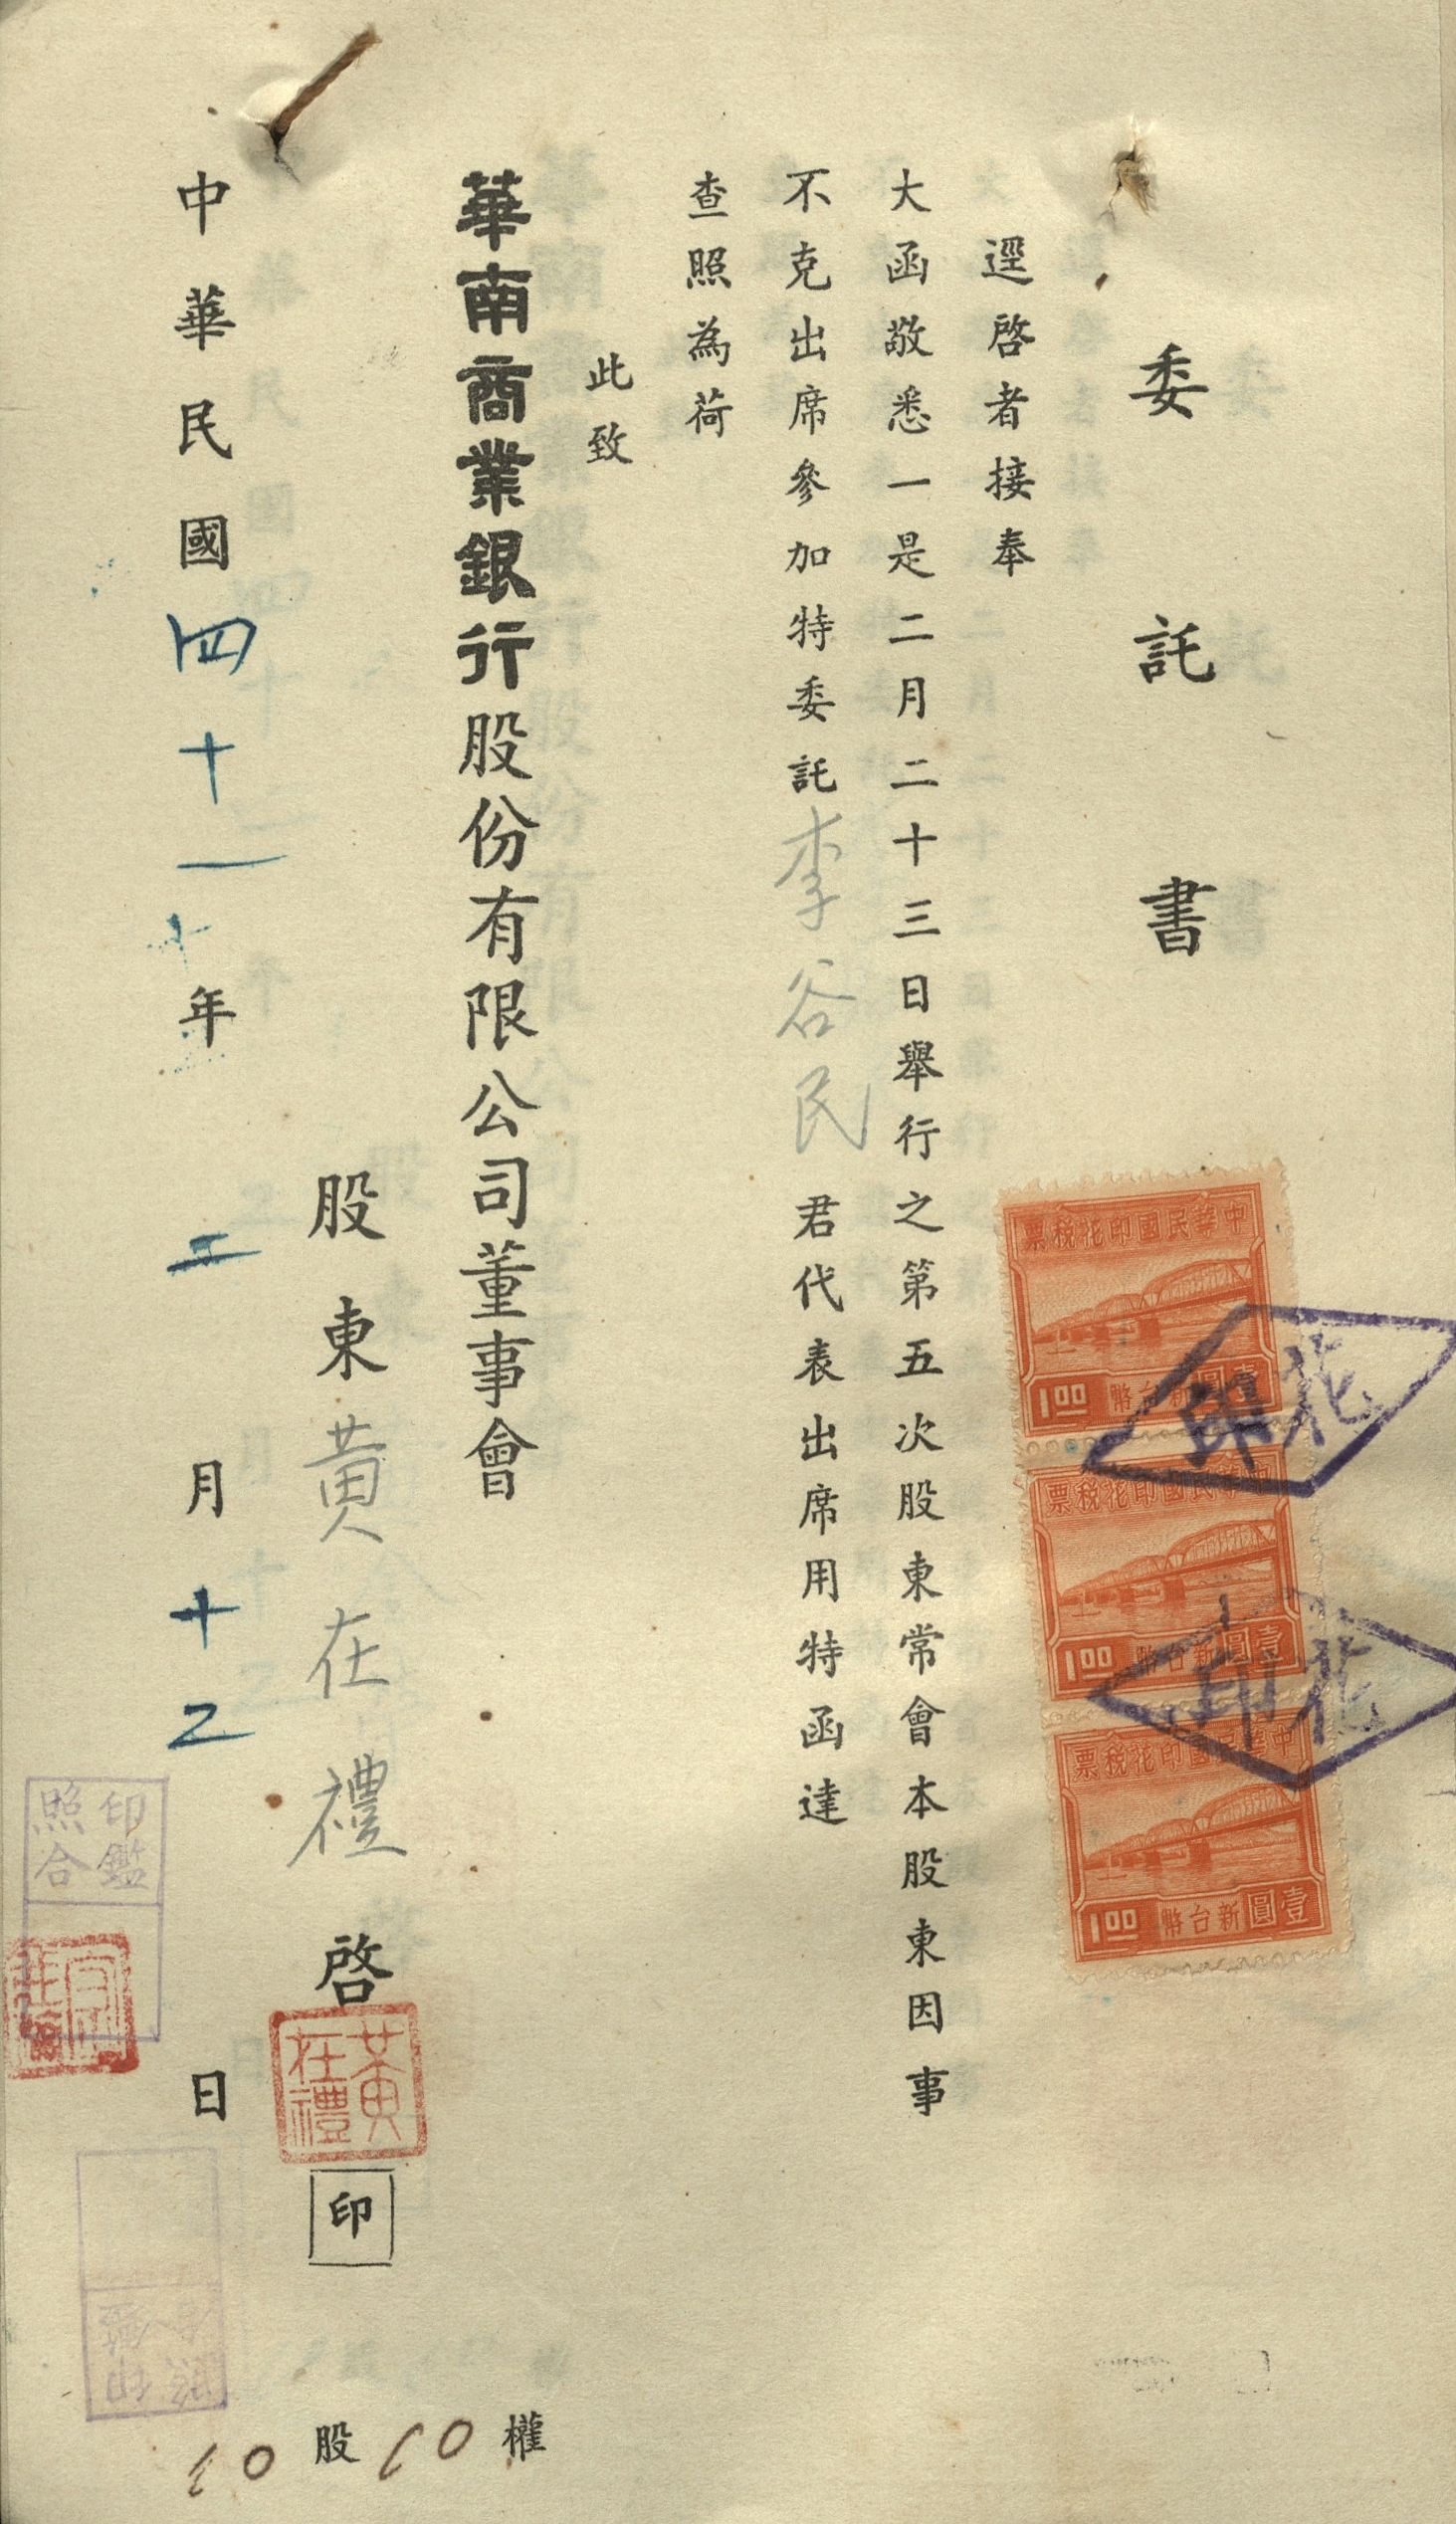 委託書
逕啓者接奉
大函敬悉一是二月二十三日舉行之第五次股東常會本股東因事
不克出席參加特委託李谷民君代表出席用特函達
查照為荷
此致
華南商業銀行股份有限公司董事會
股東黃在禮啓
黃在禮
印
中華民國四十一年二月十二日
權10
股10
中華民國印花稅票
壹圓新台幣
1.00
中華民國印花稅票
壹圓新台幣
1.00
中華民國印花稅票
壹圓新台幣
1.00
花印
花印
印鑑
照合